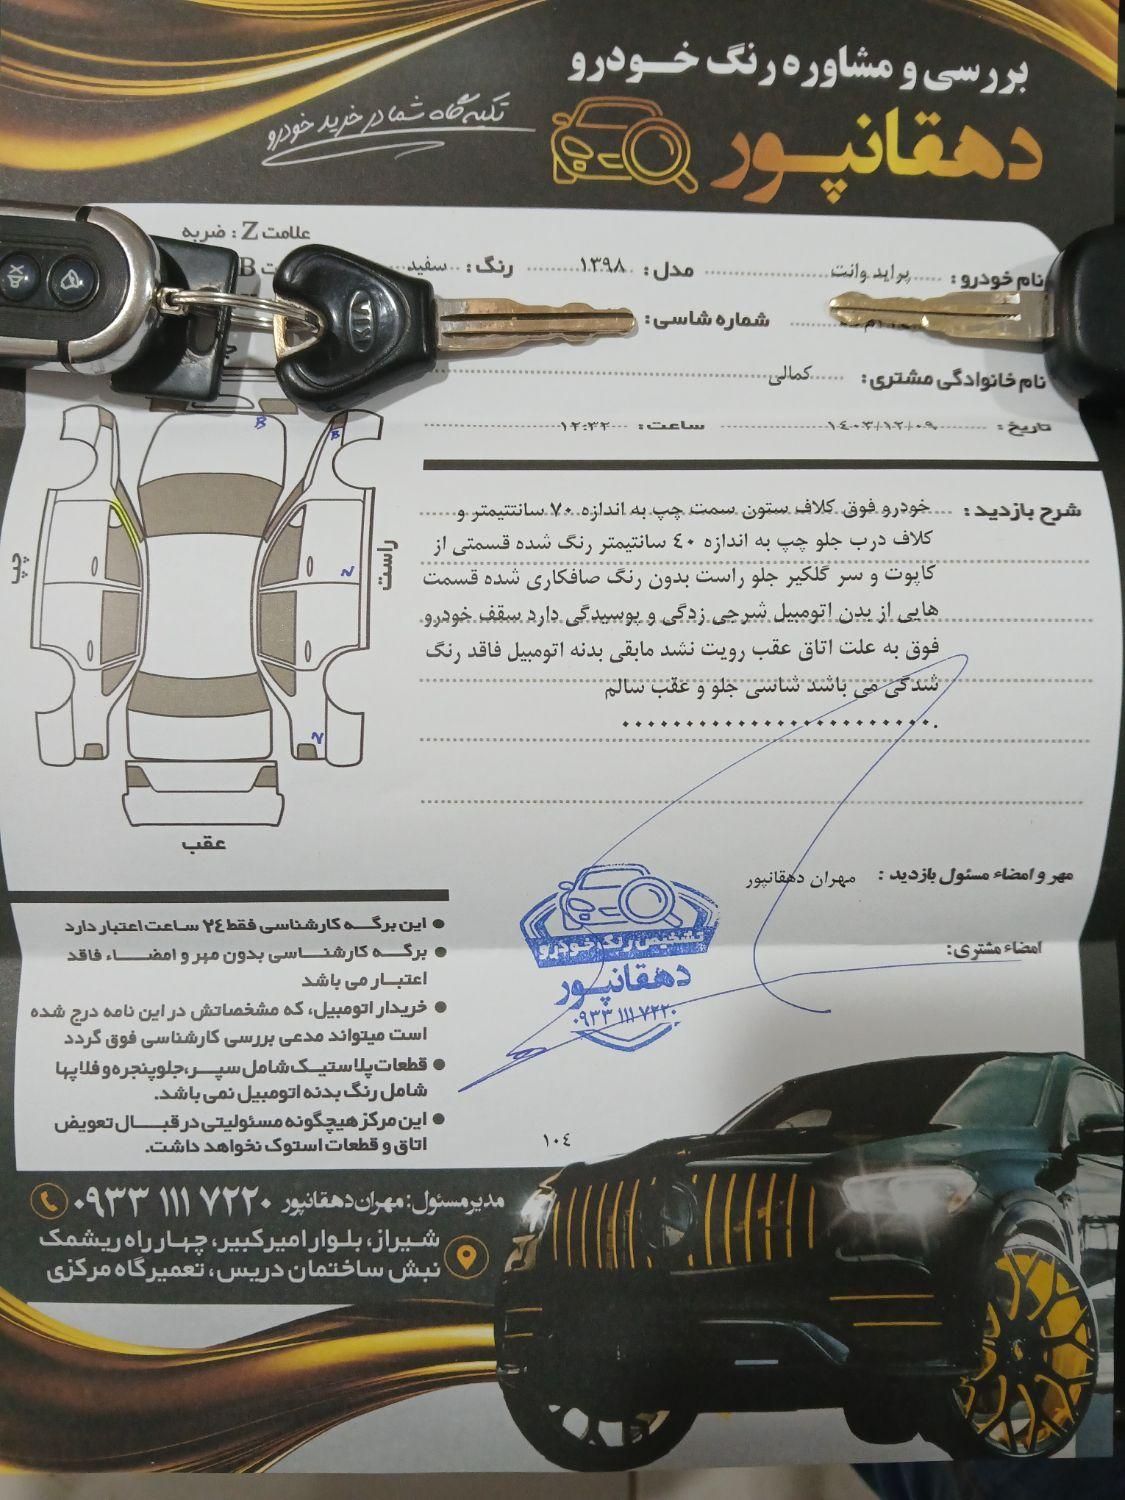 بررسی و مشاوره رنگ خودرو
دهقانپور
تکیه گاه شما در خرید خودرو
علامت Z : ضربه
B
نام خودرو : پراید وانت مدل : ۱۳۹۸ رنگ : سفید
شماره شاسی :
نام خانوادگی مشتری : کمالی
تاریخ : ۱٤۰۳/۱۲/۰۹ ساعت : ۱۲:۳۲
شرح بازدید : خودرو فوق کلاف ستون سمت چپ به اندازه ۷۰ سانتتیمتر و
کلاف درب جلو چپ به اندازه ٤۰ سانتیمتر رنگ شده قسمتی از
کاپوت و سر گلگیر جلو راست بدون رنگ صافکاری شده قسمت
هایی از بدن اتومبیل شرجی زدگی و پوسیدگی دارد سقف خودرو
فوق به علت اتاق عقب رویت نشد مابقی بدنه اتومبیل فاقد رنگ
شدگی می باشد شاسی جلو و عقب سالم
B
B
چپ
راست
عقب
مهر و امضاء مسئول بازدید : مهران دهقانپور
امضاء مشتری:
تشخیص رنگ خودرو
دهقانپور
۰۹۳۳ ۱۱۱ ۷۲۲۰
این برگه کارشناسی فقط ۲٤ ساعت اعتبار دارد
برگه کارشناسی بدون مهر و امضاء فاقد
اعتبار می باشد
خریدار اتومبیل، که مشخصاتش در این نامه درج شده
است میتواند مدعی بررسی کارشناسی فوق گردد
قطعات پلاستیک شامل سپر، جلوپنجره و فلاپها
شامل رنگ بدنه اتومبیل نمی باشد.
این مرکز هیچگونه مسئولیتی در قبال تعویض
اتاق و قطعات استوک نخواهد داشت.
۱۰٤
مدیر مسئول : مهران دهقانپور ۰۹۳۳ ۱۱۱ ۷۲۲۰
شیراز، بلوار امیرکبیر، چهار راه ریشمک
نبش ساختمان دریس، تعمیرگاه مرکزی
KIA